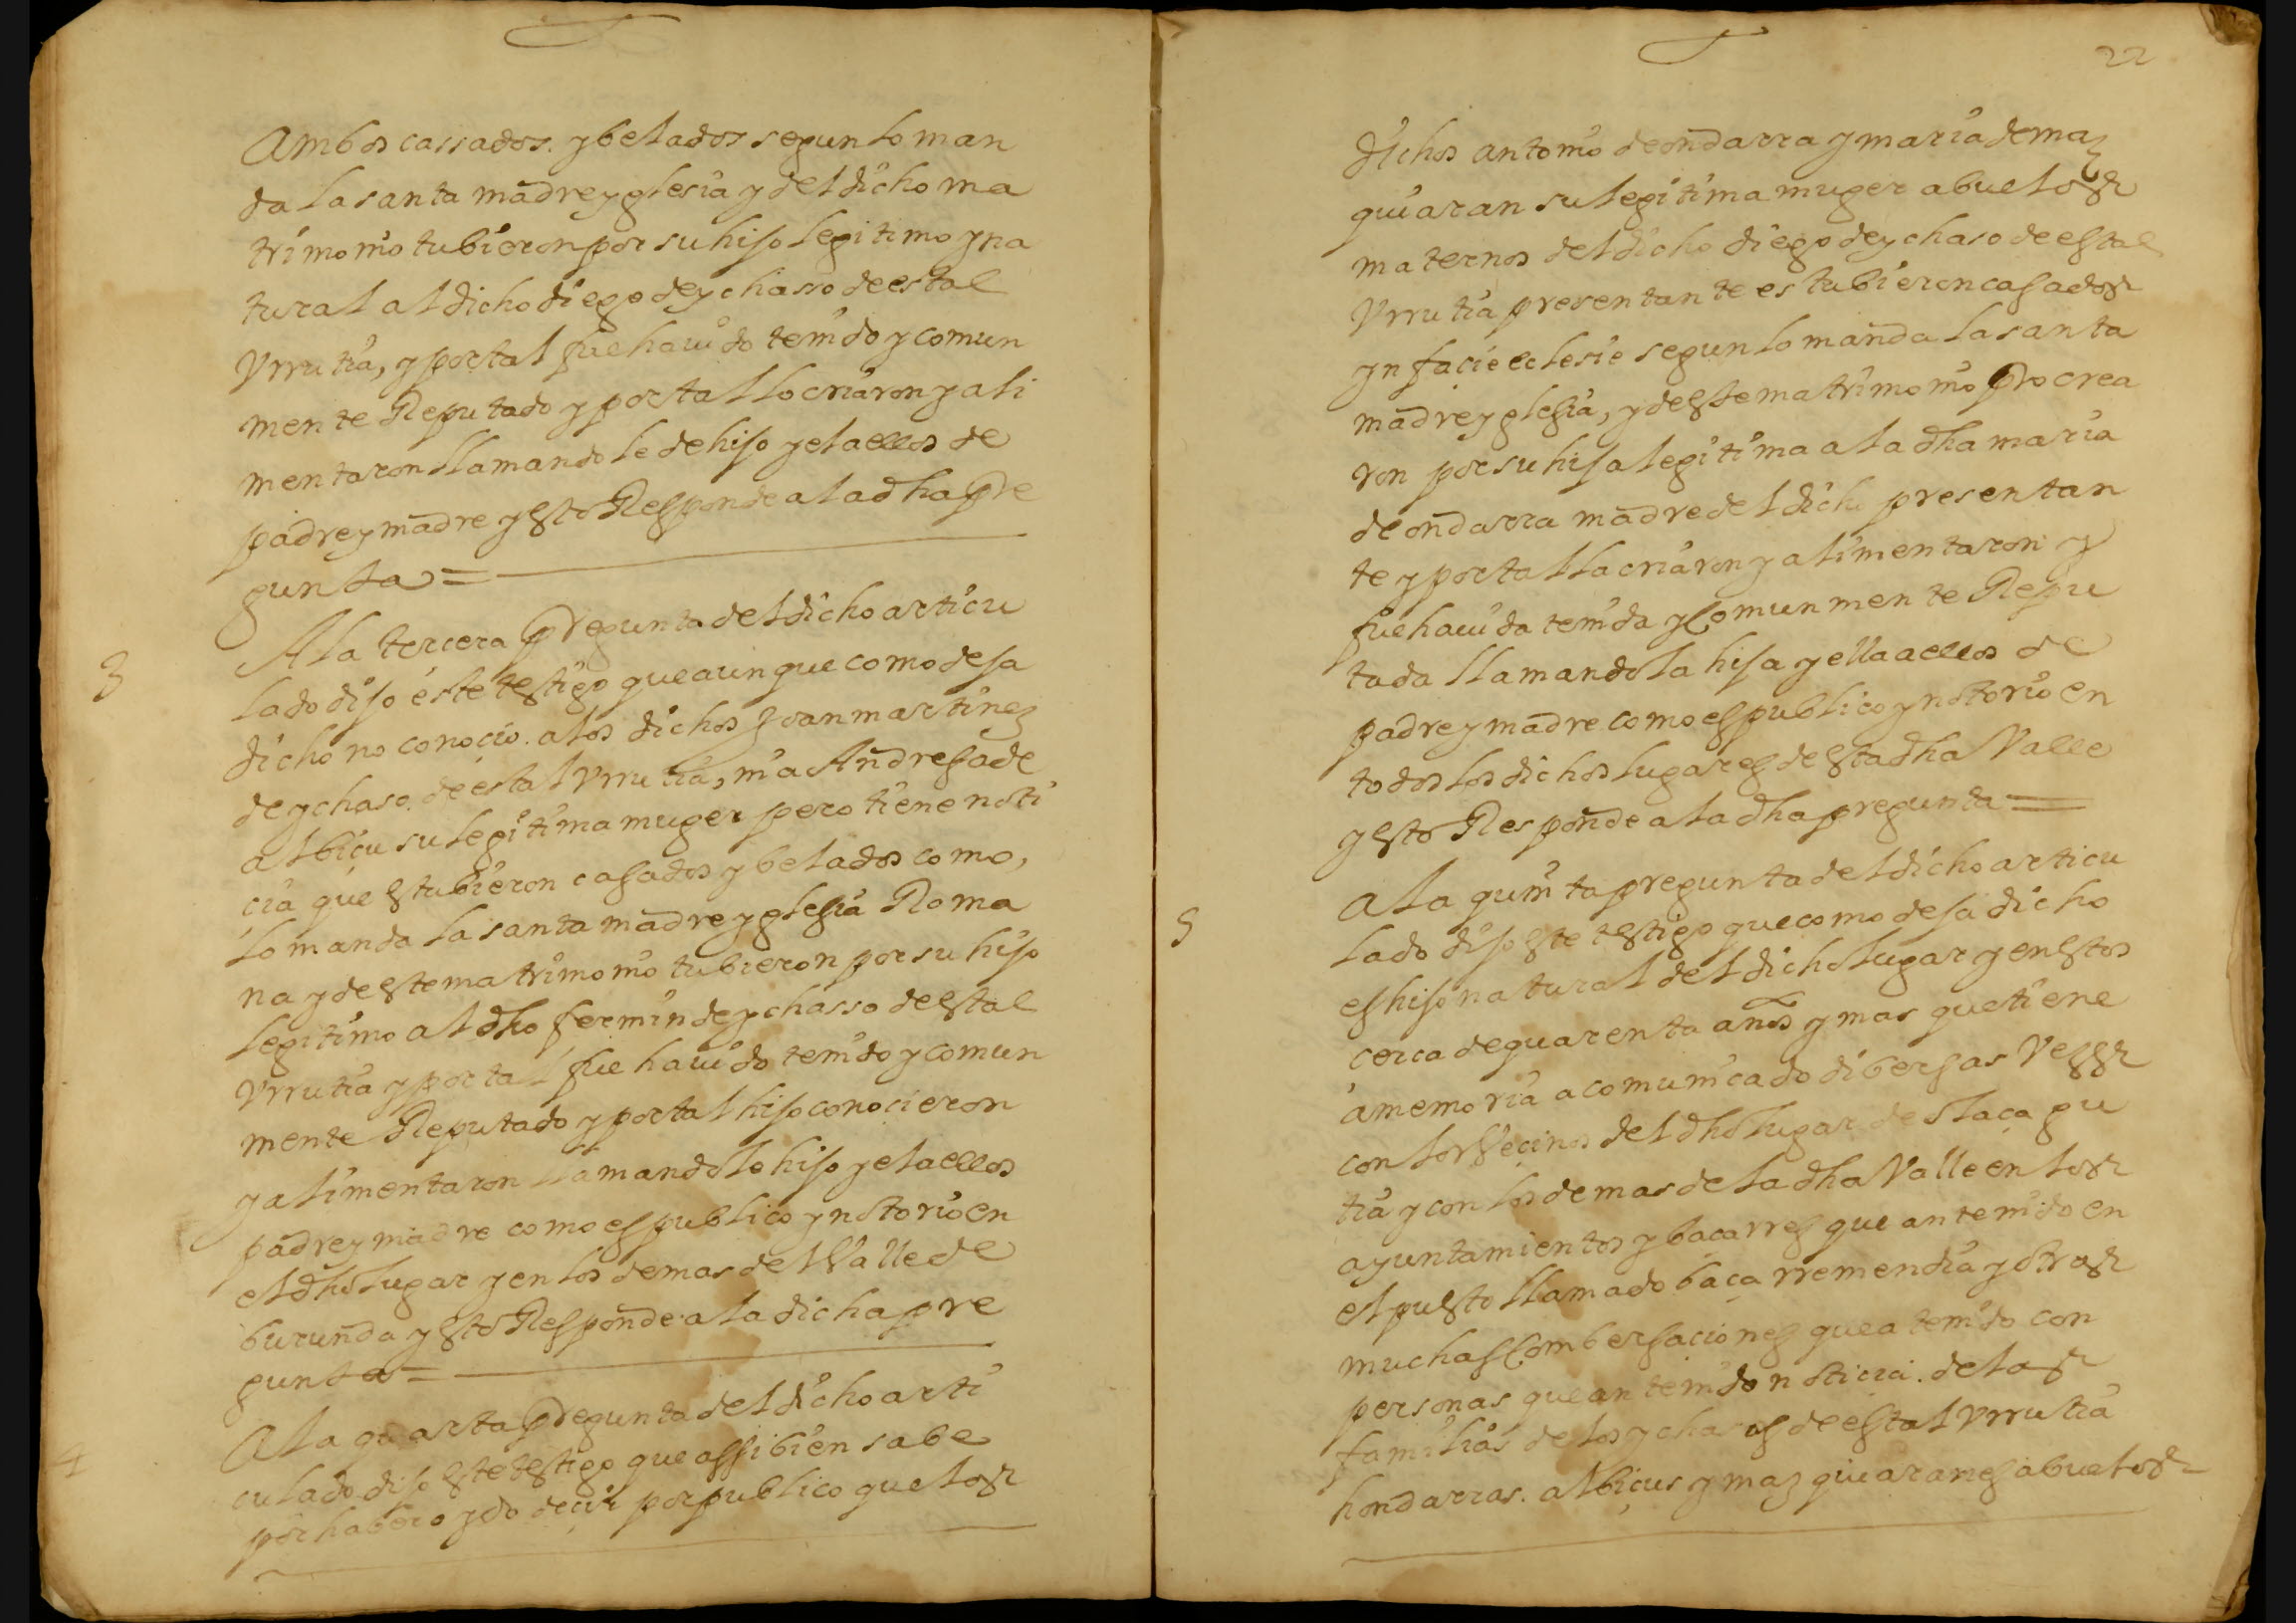 Ambos cassados. y belados segun lo man
da la santa madre yglesia y del dicho ma
trimonio tubieron por su hijo legitimo y na
tural al dicho diego de ychasso de estal
Vrrutia, y por tal fue hauido tenido y comun
mente Reputado y por tal lo criaron y ali
mentaron llamandole de hijo y el a ellos de
padre y madre y esto Responde a la dha Pre
gunta =
3
A la tercera Pregunta del dicho articu
lado dijo este testigo que aunque como deja
dicho no conocio. a los dichos Joan martinez
de ychaso. de estal Vrrutia, ni a Andresa de
albiçu su legitima muger pero tiene noti
cia que estubieron casados y belados como,
lo manda la santa madre yglesia Roma
na y de este matrimonio tubieron por su hijo
legitimo al dho fermin de ychasso de estal
Vrrutia y por tal fue hauido tenido y comun
mente Reputado y por tal hijo conocieron
y alimentaron llamandolo hijo y el a ellos
padre y madre como es publico y notorio en
el dho lugar y en los demas del Valle de
burunda y esto Responde a la dicha pre
gunta =
4
A la quarta Pregunta del dicho arti
culado dijo este testigo que assi bien sabe
por haber oydo deçir por publico que los
22
dichos antonio de ondarra y maria de maz
quiaran su legitima muger abuelos
maternos del dicho diego de ychaso de estal
Vrrutia presentante estubieron casados
yn facie eclesie segun lo manda la santa
madre yglesia, y de este matrimonio Procrea
ron por su hija legitima a la dha maria
de ondarra madre del dicho presentan
te y por tal la criaron y alimentaron y
fue hauida tenida y Comunmente Repu
tada llamandola hija y ella a ellos de
padre y madre como es publico y notorio en
todos los dichos lugares de esta dha Valle
y esto Responde a la dha pregunta =
5
A la quinta pregunta del dicho articu
lado dijo este testigo que como deja dicho
es hijo natural del dicho lugar y en estos
cerca de quarenta años y mas que tiene
amemoria a comunicado dibersas Vezes
con los Veçinos del dho lugar de Olaça gu
tia y con los demas de la dha Valle en los
ayuntamientos y baçarres que an tenido en
el puesto llamado baça rremendia y otras
muchas Combersaciones que a tenido con
personas que an tenido noticia. de las
familias de los ychasos de estal Vrrutia
hondarras. albiçus y maz quiaranes abuelos